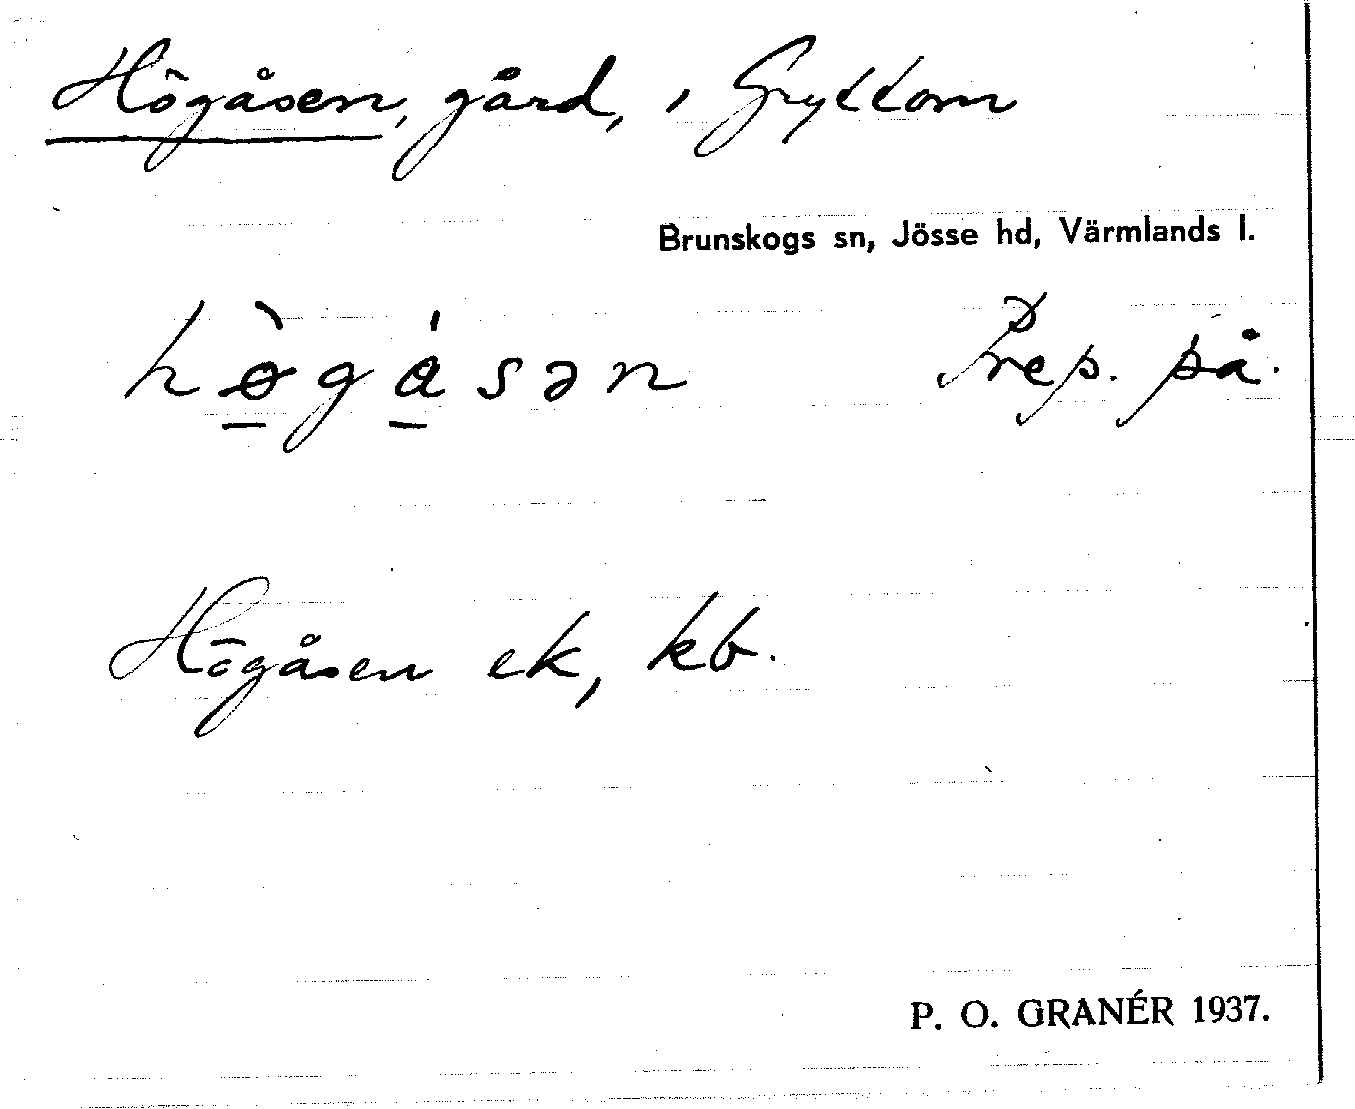 Högåsen, gård, i Gryttom
Brunskogs sn, Jösse hd, Värmlands l.
hø̠̀gá̠sən Prep. på.
Högåsen ek, kb.
P. O. GRANÉR 1937.